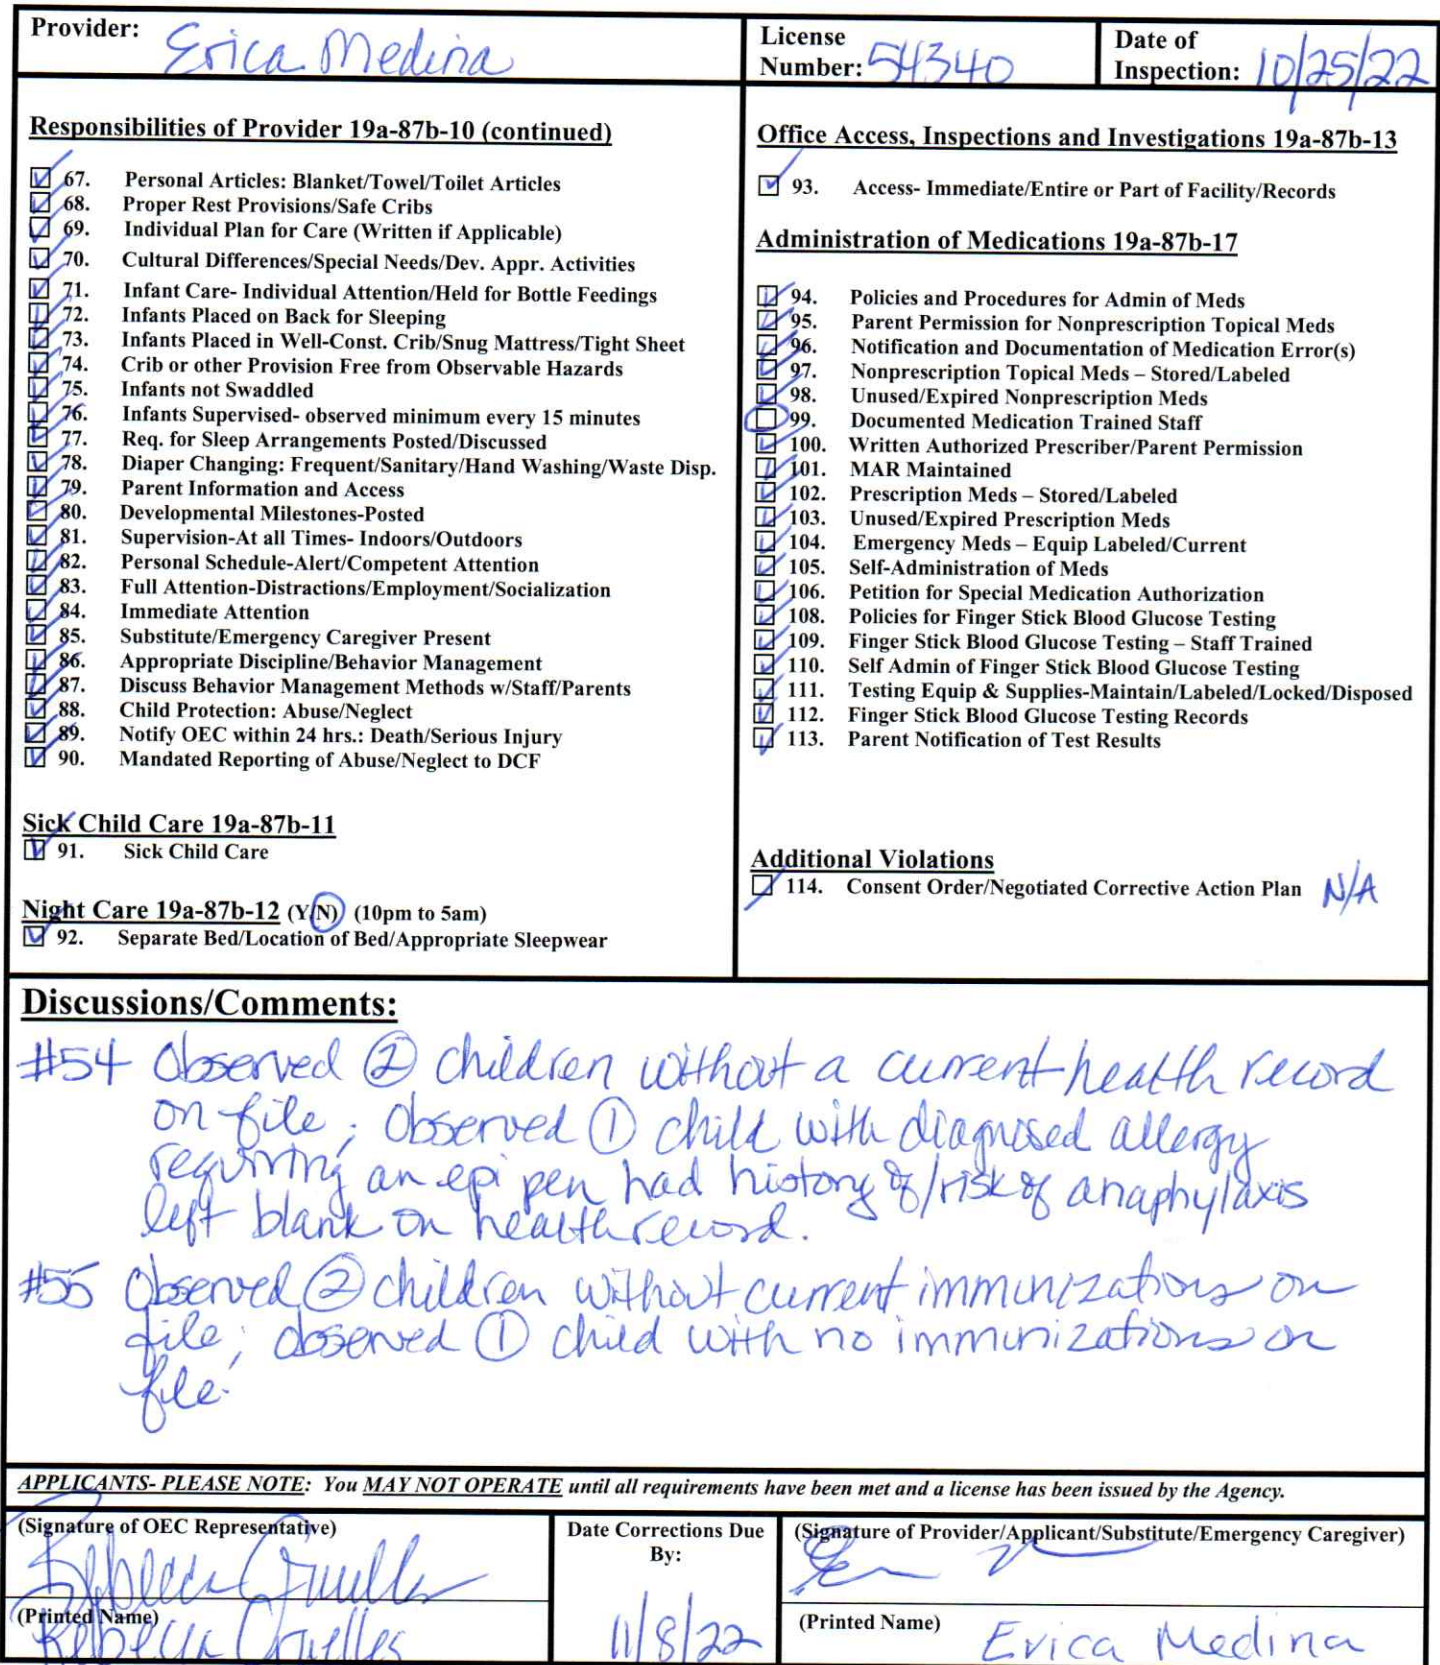 Provider: Erica Medina
License Number: 54340
Date of Inspection: 10/25/22
Responsibilities of Provider 19a-87b-10 (continued)
67. Personal Articles: Blanket/Towel/Toilet Articles
68. Proper Rest Provisions/Safe Cribs
69. Individual Plan for Care (Written if Applicable)
70. Cultural Differences/Special Needs/Dev. Appr. Activities
71. Infant Care- Individual Attention/Held for Bottle Feedings
72. Infants Placed on Back for Sleeping
73. Infants Placed in Well-Const. Crib/Snug Mattress/Tight Sheet
74. Crib or other Provision Free from Observable Hazards
75. Infants not Swaddled
76. Infants Supervised- observed minimum every 15 minutes
77. Req. for Sleep Arrangements Posted/Discussed
78. Diaper Changing: Frequent/Sanitary/Hand Washing/Waste Disp.
79. Parent Information and Access
80. Developmental Milestones-Posted
81. Supervision-At all Times- Indoors/Outdoors
82. Personal Schedule-Alert/Competent Attention
83. Full Attention-Distractions/Employment/Socialization
84. Immediate Attention
85. Substitute/Emergency Caregiver Present
86. Appropriate Discipline/Behavior Management
87. Discuss Behavior Management Methods w/Staff/Parents
88. Child Protection: Abuse/Neglect
89. Notify OEC within 24 hrs.: Death/Serious Injury
90. Mandated Reporting of Abuse/Neglect to DCF
Sick Child Care 19a-87b-11
91. Sick Child Care
Night Care 19a-87b-12 (Y/N) (10pm to 5am)
92. Separate Bed/Location of Bed/Appropriate Sleepwear
Office Access, Inspections and Investigations 19a-87b-13
93. Access- Immediate/Entire or Part of Facility/Records
Administration of Medications 19a-87b-17
94. Policies and Procedures for Admin of Meds
95. Parent Permission for Nonprescription Topical Meds
96. Notification and Documentation of Medication Error(s)
97. Nonprescription Topical Meds – Stored/Labeled
98. Unused/Expired Nonprescription Meds
99. Documented Medication Trained Staff
100. Written Authorized Prescriber/Parent Permission
101. MAR Maintained
102. Prescription Meds – Stored/Labeled
103. Unused/Expired Prescription Meds
104. Emergency Meds – Equip Labeled/Current
105. Self-Administration of Meds
106. Petition for Special Medication Authorization
108. Policies for Finger Stick Blood Glucose Testing
109. Finger Stick Blood Glucose Testing – Staff Trained
110. Self Admin of Finger Stick Blood Glucose Testing
111. Testing Equip & Supplies-Maintain/Labeled/Locked/Disposed
112. Finger Stick Blood Glucose Testing Records
113. Parent Notification of Test Results
Additional Violations
114. Consent Order/Negotiated Corrective Action Plan N/A
Discussions/Comments:
#54 Observed ② children without a current health record
on file; Observed ① child with diagnosed allergy
requiring an epi pen had history of/risk of anaphylaxis
left blank on health record.
#55 Observed ② children without current immunizations on
file; observed ① child with no immunizations on
file.
APPLICANTS- PLEASE NOTE: You MAY NOT OPERATE until all requirements have been met and a license has been issued by the Agency.
(Signature of OEC Representative)
(Printed Name)
Rebecca
Date Corrections Due
By:
11/8/22
(Signature of Provider/Applicant/Substitute/Emergency Caregiver)
(Printed Name) Erica Medina